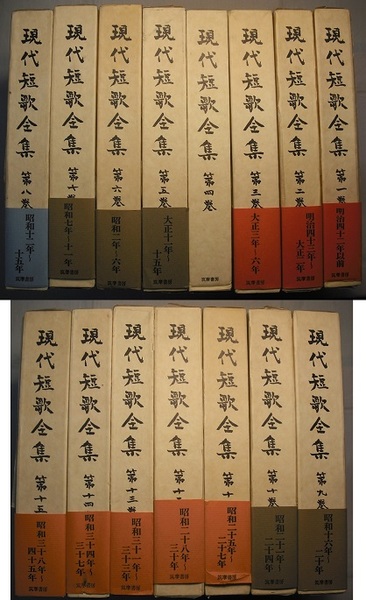 現代短歌全集 第一巻
明治四十二年以前
筑摩書房
現代短歌全集 第二巻
明治四十三年〜
大正二年
筑摩書房
現代短歌全集 第三巻
大正三年〜六年
筑摩書房
現代短歌全集 第四巻
筑摩書房
現代短歌全集 第五巻
大正十一年〜
十五年
筑摩書房
現代短歌全集 第六巻
昭和二年〜六年
筑摩書房
現代短歌全集 第七巻
昭和七年〜十一年
筑摩書房
現代短歌全集 第八巻
昭和十二年〜
十五年
筑摩書房
現代短歌全集 第九巻
昭和十六年〜
二十年
筑摩書房
現代短歌全集 第十巻
昭和二十一年〜
二十四年
筑摩書房
現代短歌全集 第十
昭和二十五年〜
二十七年
筑摩書房
現代短歌全集 第十
昭和二十八年〜
三十年
筑摩書房
現代短歌全集 第十三巻
昭和三十一年〜
三十三年
筑摩書房
現代短歌全集 第十四
昭和三十四年〜
三十七年
筑摩書房
現代短歌全集 第十五
昭和三十八年〜
四十五年
筑摩書房